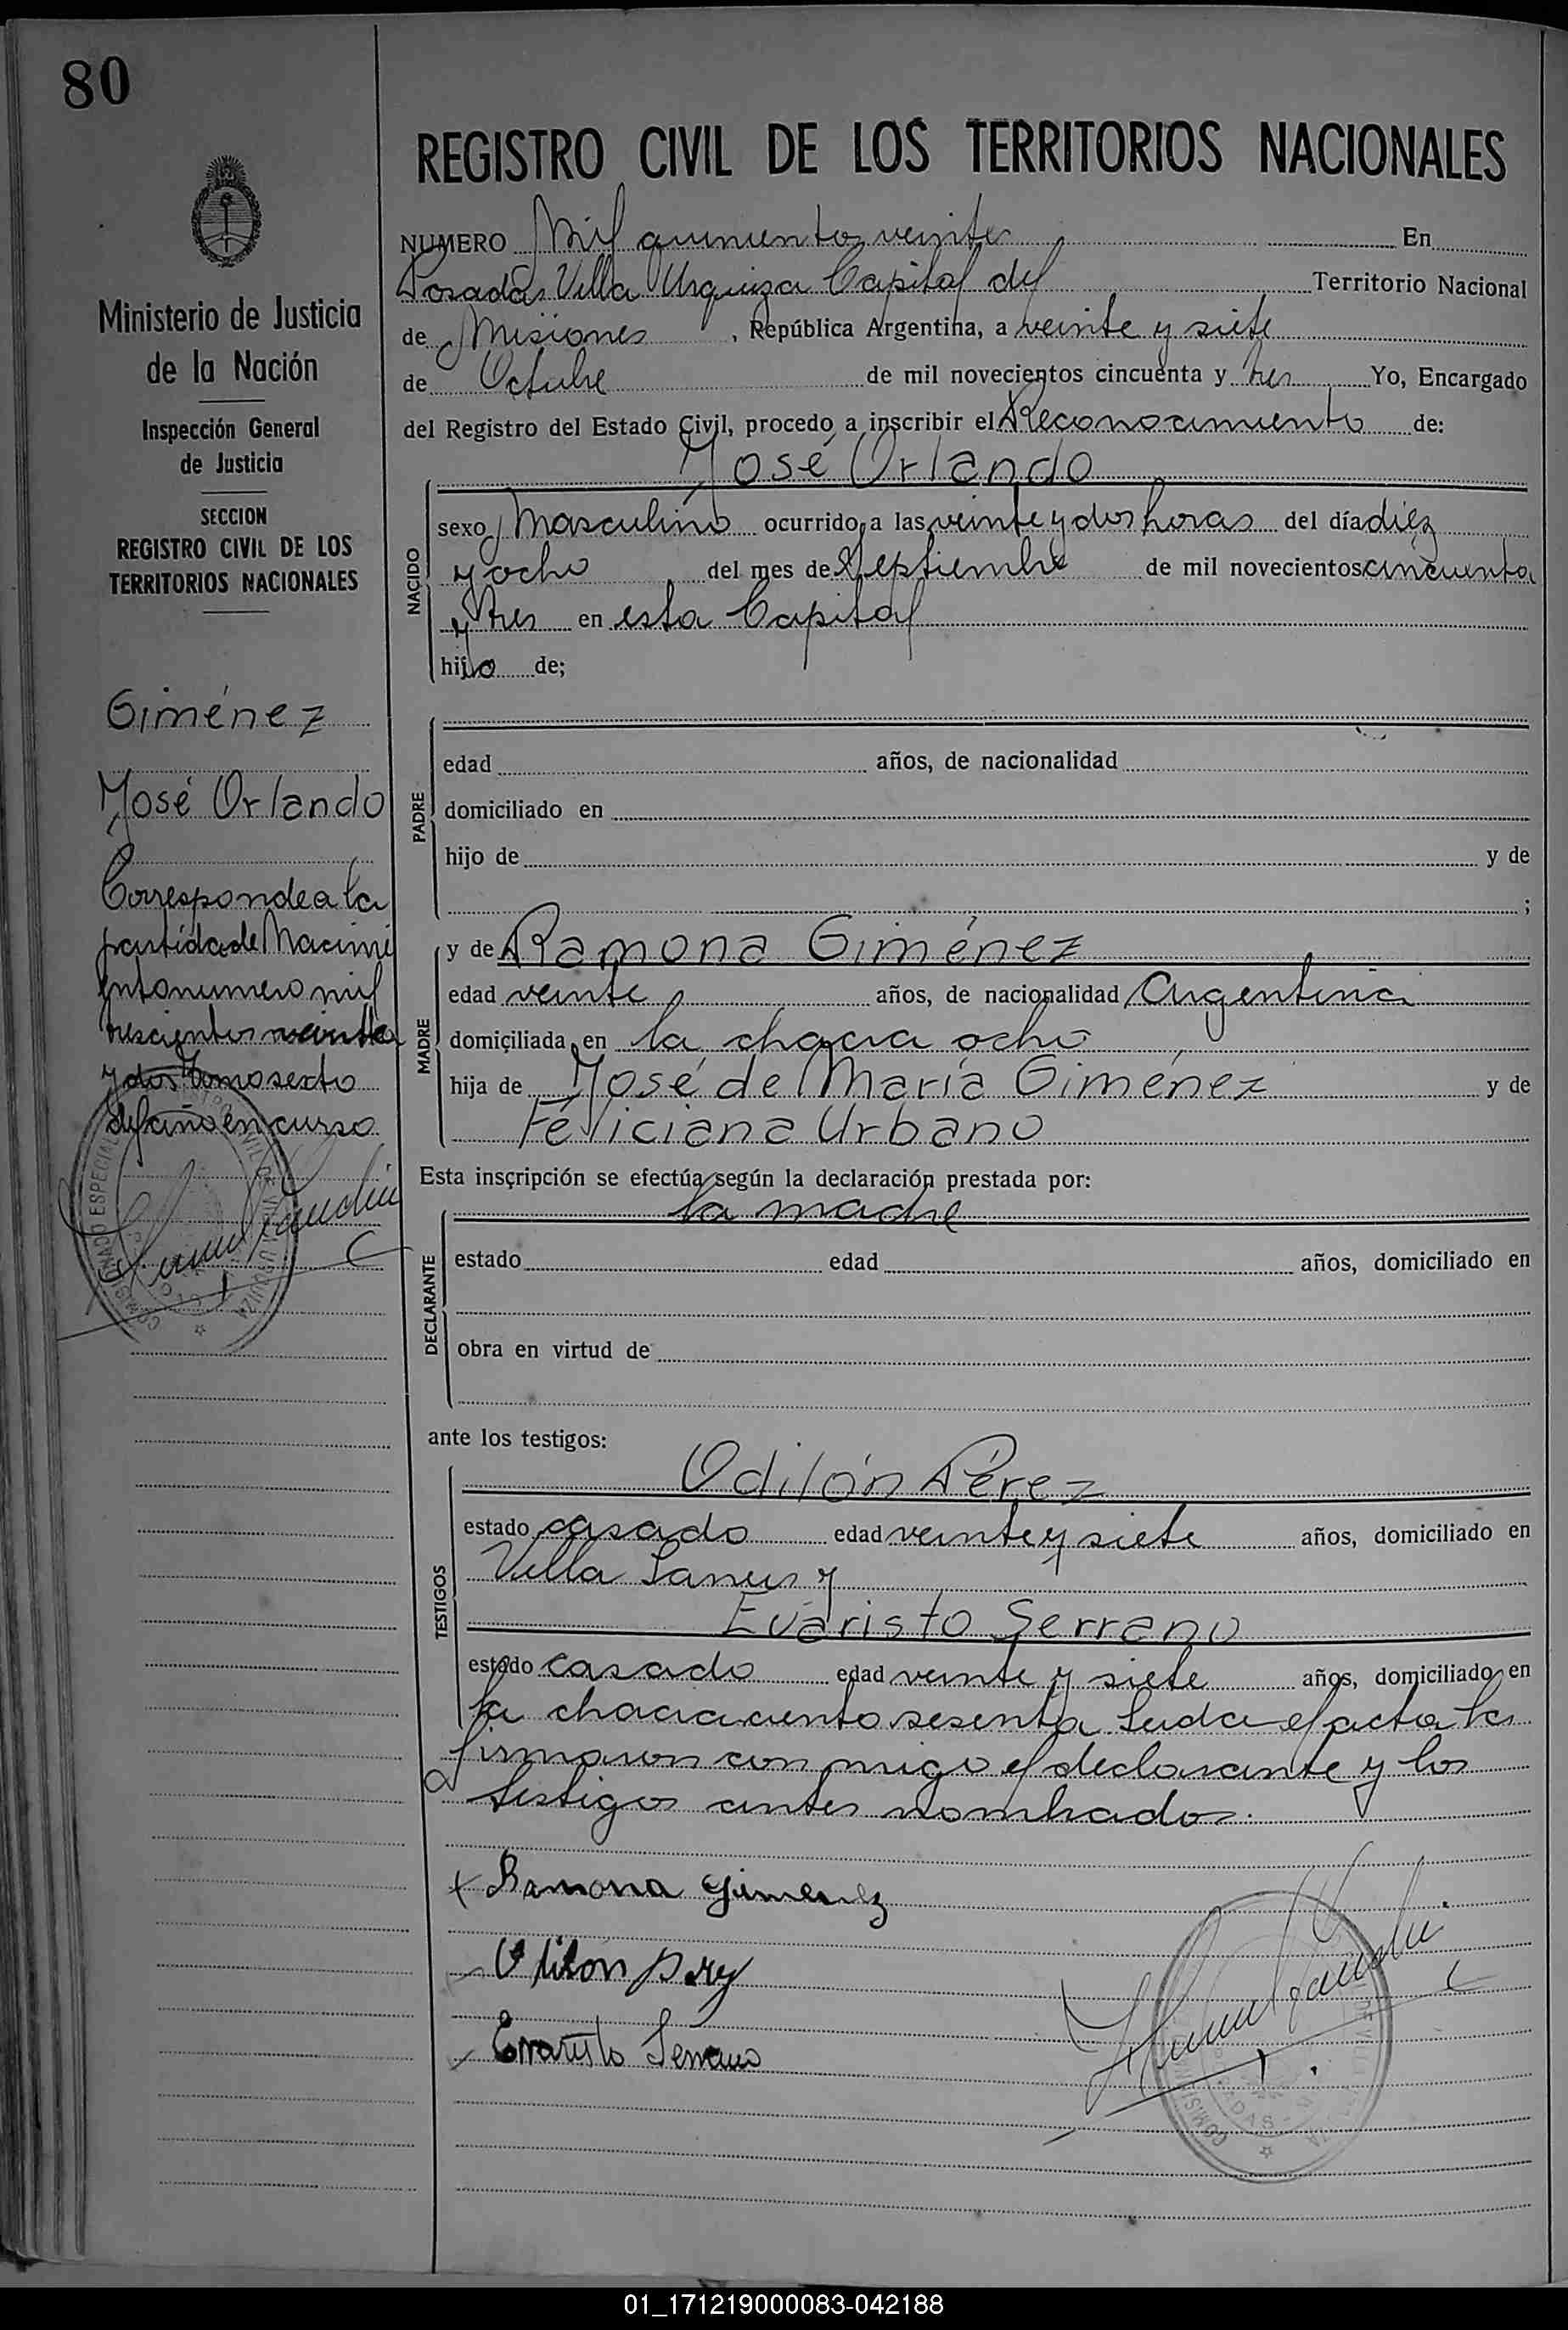 80
REGISTRO CIVIL DE LOS TERRITORIOS NACIONALES
NUMERO Mil quinientos veinte En
Posadas Villa Urquiza Capital del Territorio Nacional
de Misiones, República Argentina, a veinte y siete
de Octubre de mil novecientos cincuenta y tres Yo, Encargado
del Registro del Estado Civil, procedo a inscribir el Reconocimiento de:
José Orlando
NACIDO
sexo Masculino ocurrido a las veinte y dos horas del día diez
y ocho del mes de Septiembre de mil novecientos cincuenta
y tres en esta Capital
hijo de;
PADRE
edad años, de nacionalidad
domiciliado en
hijo de y de
;
MADRE
y de Ramona Giménez
edad veinte años, de nacionalidad Argentina
domiciliada en la chacra ocho
hija de José de María Giménez y de
Feliciana Urbano
Esta inscripción se efectúa según la declaración prestada por:
la madre
DECLARANTE
estado edad años, domiciliado en
obra en virtud de
ante los testigos:
TESTIGOS
Odilón Pérez
estado casado edad veinte y siete años, domiciliado en
Villa Lanus y
Evaristo Serrano
estado casado edad veinte y siete años, domiciliado en
la chacra ciento sesenta Leida el acta la
firmaron con migo el declarante y los
testigos antes nombrados.
Ramona Gimenez
Odilon Perez
Evaristo Serrano
Ministerio de Justicia
de la Nación
Inspección General
de Justicia
SECCION
REGISTRO CIVIL DE LOS
TERRITORIOS NACIONALES
Giménez
José Orlando
Corresponde a la
partida de Nacimi
ento numero mil
trescientos veinte
y dos tomo sexto
del año en curso
01_171219000083-042188